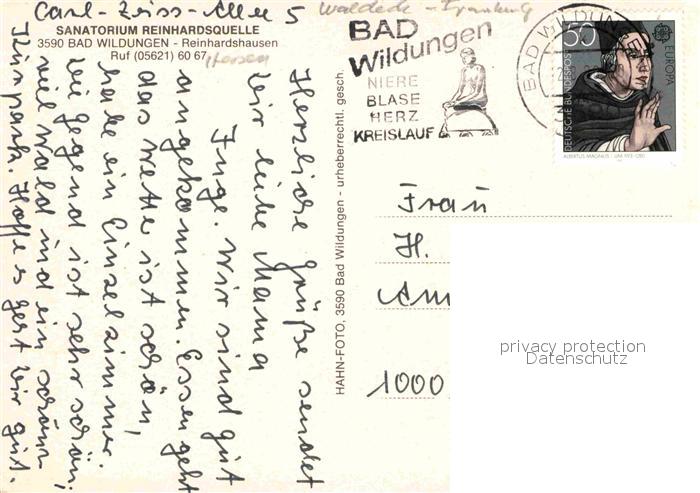 Carl-Zeiss-Allee 5
SANATORIUM REINHARDSQUELLE
3590 BAD WILDUNGEN - Reinhardshausen
Ruf (05621) 60 67
Hessen
Waldeck - Frankenberg
Herzliche Grüße sendet
Dir liebe Mama
Inge. Wir sind gut
angekommen. Essen geht
das Wetter ist schön,
habe ein Einzelzimmer.
Die Gegend ist sehr schön,
viel Wald und ein schöner
Kurpark. Hoffe es geht Dir gut.
HAHN-FOTO, 3590 Bad Wildungen - urheberrechtl. gesch.
BAD
Wildungen
NIERE
BLASE
HERZ
KREISLAUF
BAD WILDUNGEN
50
EUROPA
DEUTSCHE BUNDESPOST
ALBERTUS MAGNUS
1193-1280
Frau
H.
Am
1000
privacy protection
Datenschutz